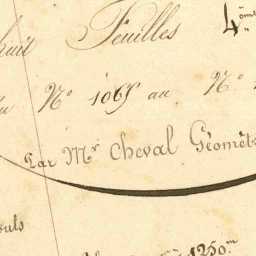 huit Feuilles 4.ème
du N.º 1065 au N.º
Par M.r Cheval Géomèt
1250.m